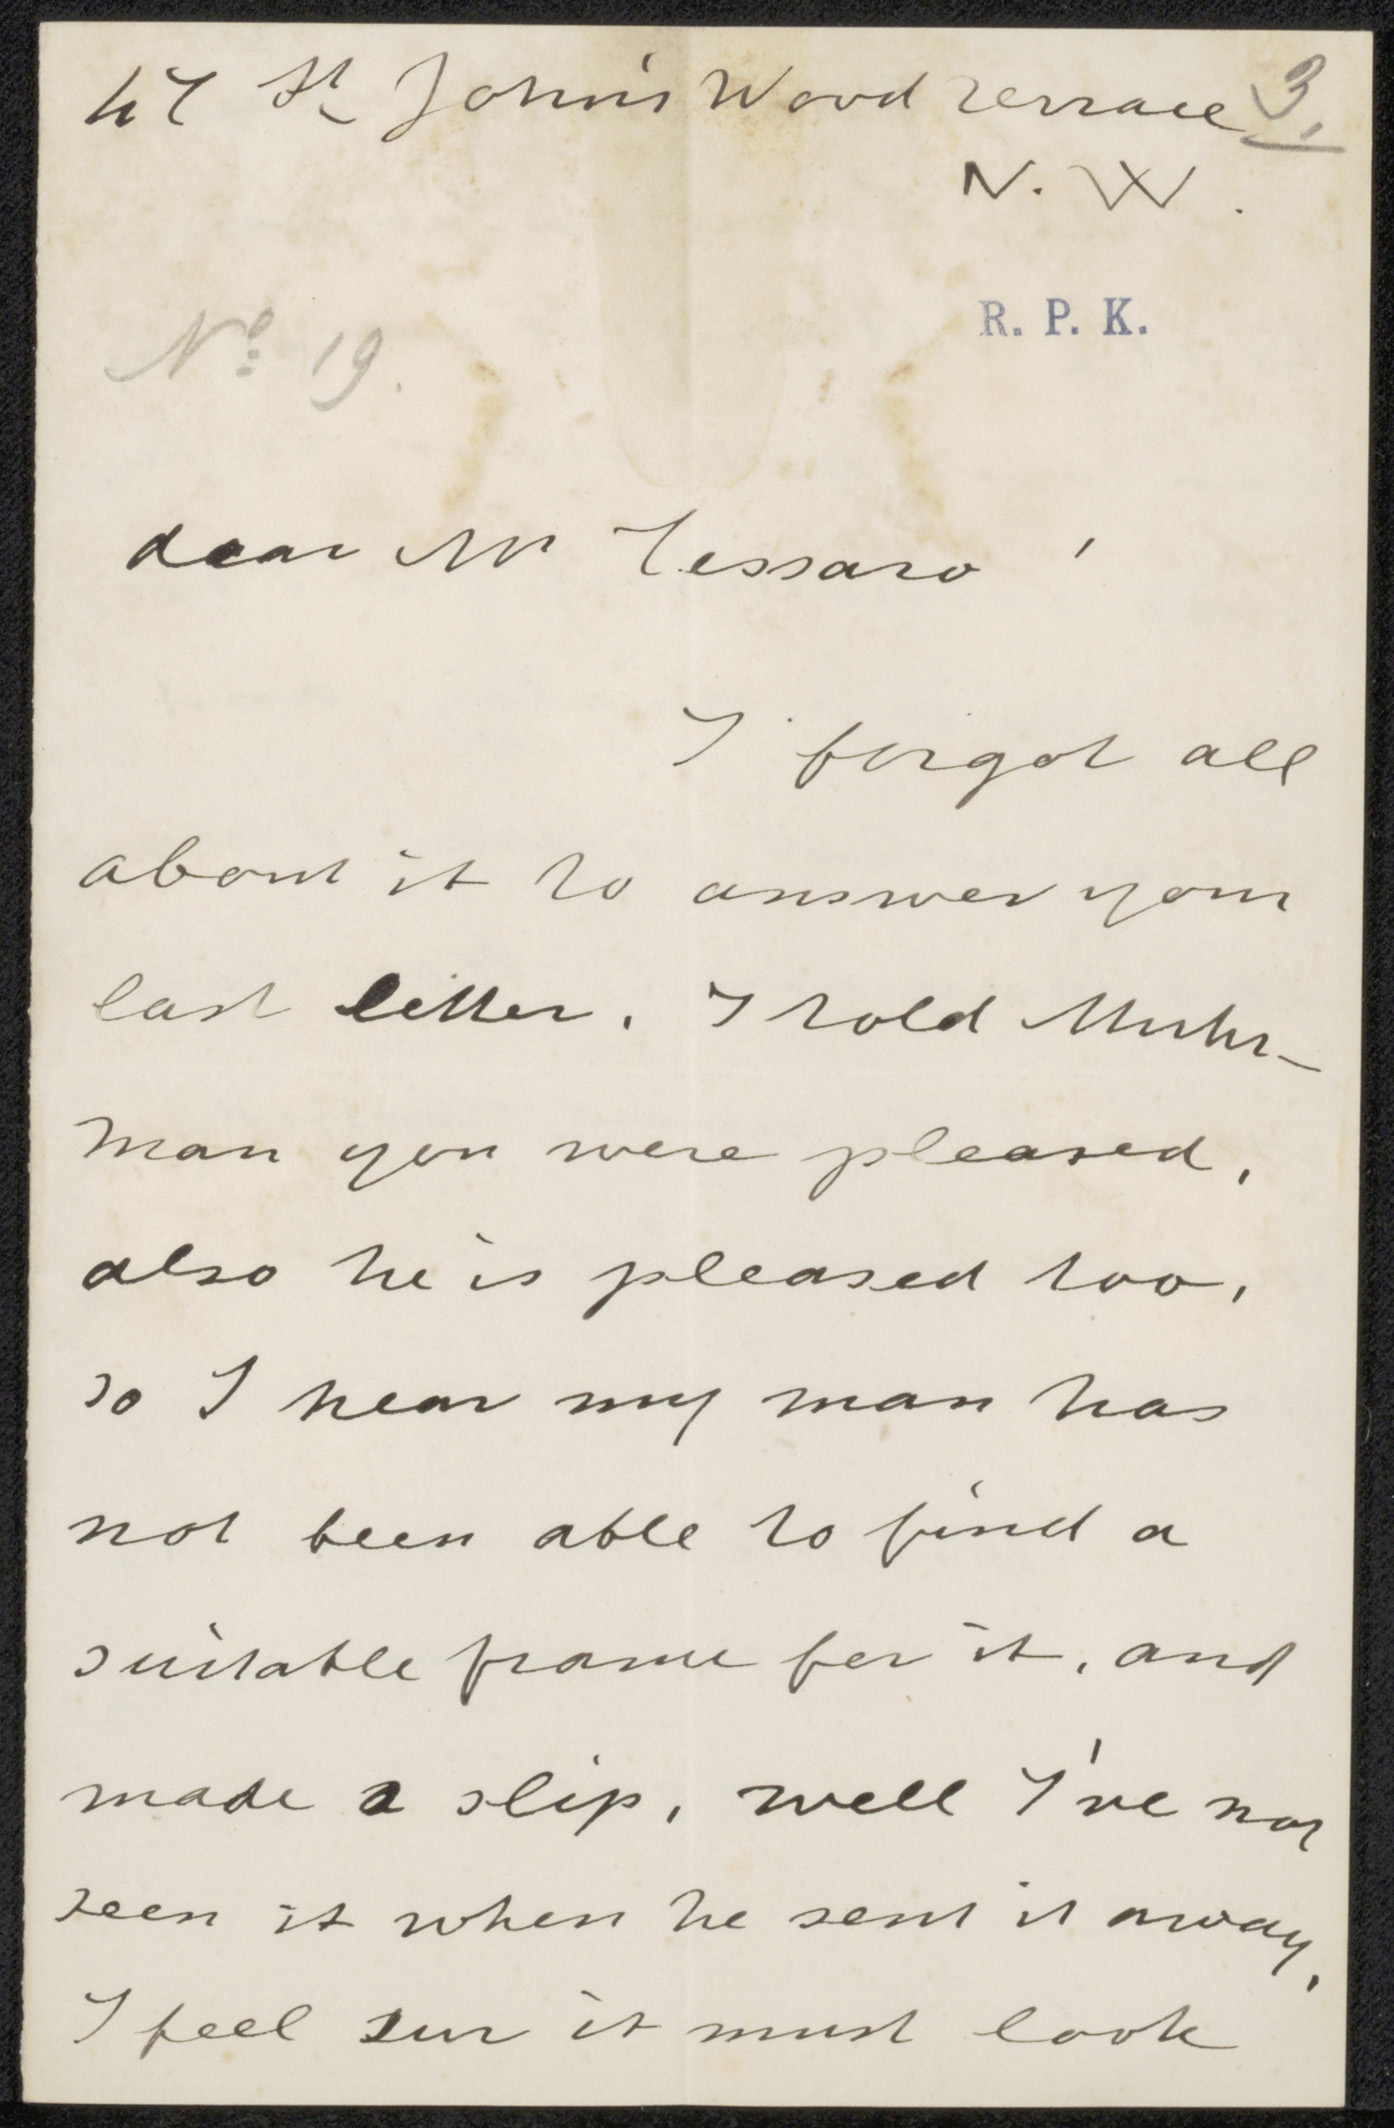 47 St John's Wood Terrace 3.
N. W.
R. P. K.
No 19.
dear Mr Tessaro'
I forgot all
about it to answer your
last letter. I told Muhr-
man you were pleased,
also he is pleased too,
so I hear my man has
not been able to find a
suitable frame for it, and
made a slip, well I've not
seen it when he sent it away,
I feel sur it must look